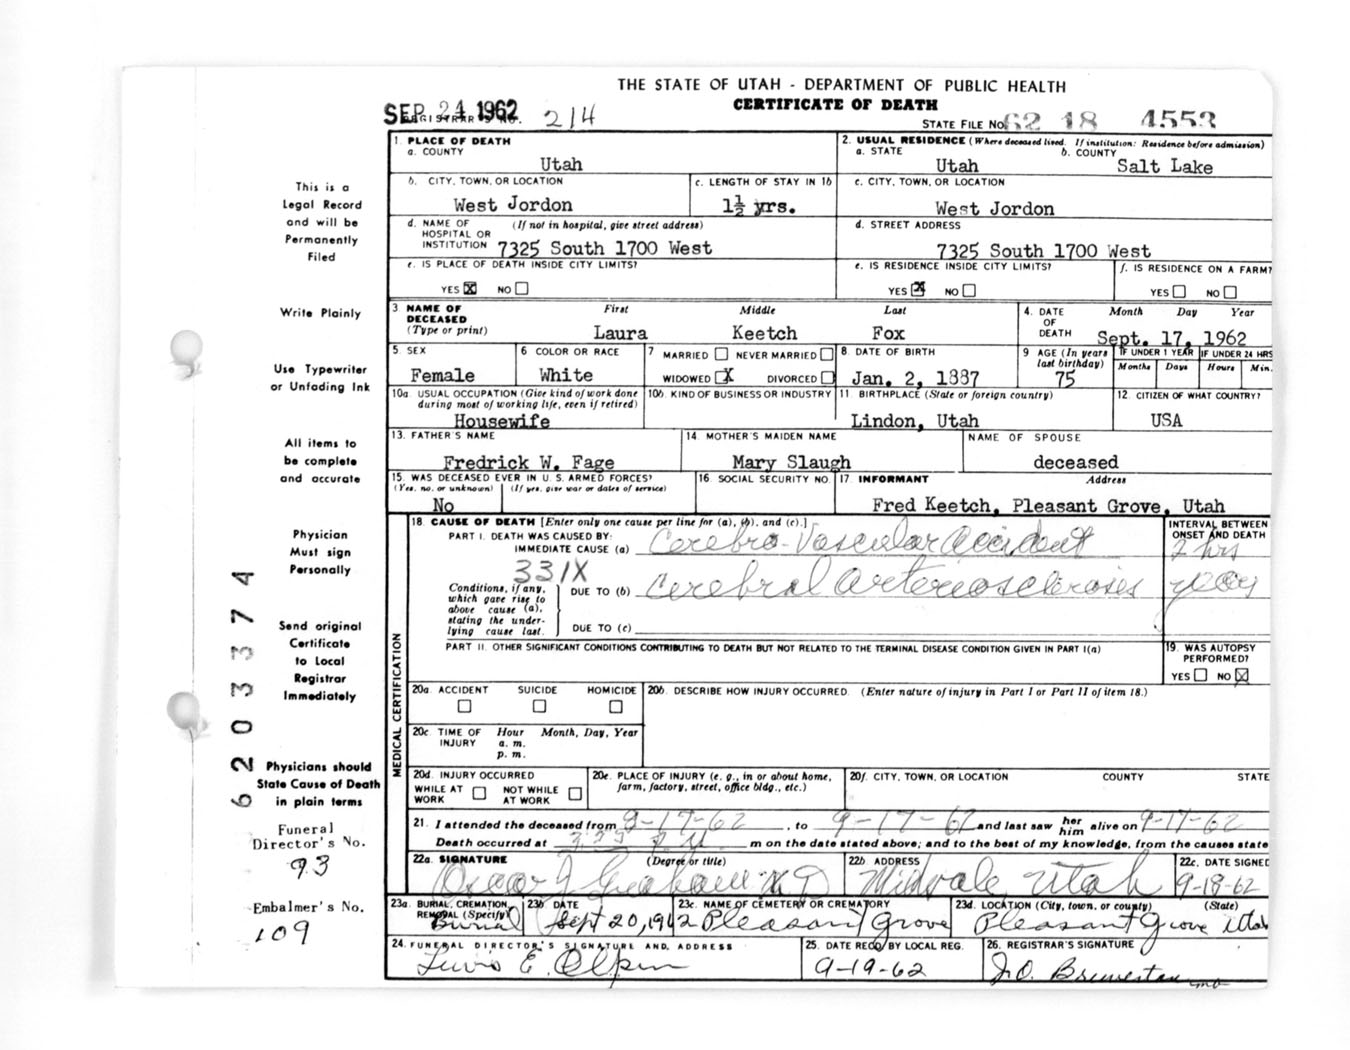 THE STATE OF UTAH - DEPARTMENT OF PUBLIC HEALTH
CERTIFICATE OF DEATH
SEP 24 1962
REGISTRAR'S NO. 214
STATE FILE No. 62 18 4553
This is a
Legal Record
and will be
Permanently
Filed
Write Plainly
Use Typewriter
or Unfading Ink
All items to
be complete
and accurate
Physician
Must sign
Personally
Send original
Certificate
to Local
Registrar
Immediately
Physicians should
State Cause of Death
in plain terms
Funeral
Director's No.
93
Embalmer's No.
109
6203374
1. PLACE OF DEATH
a. COUNTY
Utah
2. USUAL RESIDENCE (Where deceased lived. If institution: Residence before admission)
a. STATE
Utah
b. COUNTY
Salt Lake
b. CITY, TOWN, OR LOCATION
West Jordon
c. LENGTH OF STAY IN 1b
1½ yrs.
c. CITY, TOWN, OR LOCATION
West Jordon
d. NAME OF (If not in hospital, give street address)
HOSPITAL OR
INSTITUTION 7325 South 1700 West
d. STREET ADDRESS
7325 South 1700 West
e. IS PLACE OF DEATH INSIDE CITY LIMITS?
YES X NO
e. IS RESIDENCE INSIDE CITY LIMITS?
YES X NO
f. IS RESIDENCE ON A FARM?
YES NO
3 NAME OF DECEASED (Type or print)
First Middle Last
Laura Keetch Fox
4. DATE OF DEATH
Month Day Year
Sept. 17, 1962
5. SEX
Female
6 COLOR OR RACE
White
7 MARRIED NEVER MARRIED
WIDOWED X DIVORCED
8. DATE OF BIRTH
Jan. 2, 1887
9 AGE (In years last birthday)
75
IF UNDER 1 YEAR
Months Days
IF UNDER 24 HRS
Hours Min.
10a. USUAL OCCUPATION (Give kind of work done during most of working life, even if retired)
Housewife
10b. KIND OF BUSINESS OR INDUSTRY
11. BIRTHPLACE (State or foreign country)
Lindon, Utah
12. CITIZEN OF WHAT COUNTRY?
USA
13. FATHER'S NAME
Fredrick W. Fage
14. MOTHER'S MAIDEN NAME
Mary Slaugh
NAME OF SPOUSE
deceased
15. WAS DECEASED EVER IN U. S. ARMED FORCES?
(Yes, no, or unknown) (If yes, give war or dates of service)
No
16. SOCIAL SECURITY NO.
17. INFORMANT Address
Fred Keetch, Pleasant Grove, Utah
MEDICAL CERTIFICATION
18. CAUSE OF DEATH [Enter only one cause per line for (a), (b), and (c).]
PART I. DEATH WAS CAUSED BY:
IMMEDIATE CAUSE (a) Cerebro-Vascular Accident
INTERVAL BETWEEN
ONSET AND DEATH
2 hrs
331X
Conditions, if any,
which gave rise to
above cause (a),
stating the under-
lying cause last.
DUE TO (b) Cerebral Arteriosclerosis
years
DUE TO (c)
PART II. OTHER SIGNIFICANT CONDITIONS CONTRIBUTING TO DEATH BUT NOT RELATED TO THE TERMINAL DISEASE CONDITION GIVEN IN PART I(a)
19. WAS AUTOPSY
PERFORMED?
YES NO X
20a. ACCIDENT SUICIDE HOMICIDE
20b. DESCRIBE HOW INJURY OCCURRED. (Enter nature of injury in Part I or Part II of item 18.)
20c. TIME OF INJURY
Hour Month, Day, Year
a. m.
p. m.
20d. INJURY OCCURRED
WHILE AT WORK NOT WHILE AT WORK
20e. PLACE OF INJURY (e. g., in or about home, farm, factory, street, office bldg., etc.)
20f. CITY, TOWN, OR LOCATION COUNTY STATE
21. I attended the deceased from 9-17-62, to 9-17-62 and last saw her him alive on 9-17-62
Death occurred at m on the date stated above; and to the best of my knowledge, from the causes state
22a. SIGNATURE (Degree or title)
Oscar J Graham M D
22b ADDRESS
Midvale, Utah
22c. DATE SIGNED
9-18-62
23a. BURIAL, CREMATION, REMOVAL (Specify)
Burial
23b DATE
Sept 20, 1962
23c. NAME OF CEMETERY OR CREMATORY
Pleasant Grove
23d. LOCATION (City, town, or county) (State)
Pleasant Grove Utah
24. FUNERAL DIRECTOR'S SIGNATURE AND ADDRESS
E. Olpin
25. DATE RECD BY LOCAL REG.
9-19-62
26. REGISTRAR'S SIGNATURE
J. O. Brewerton